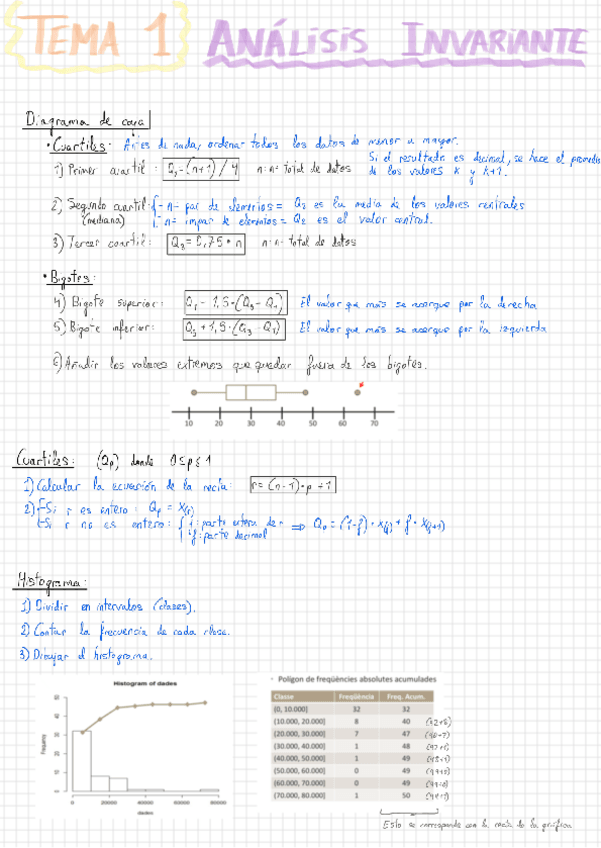 TEMA 1 ANÁLISIS INVARIANTE
Diagrama de caja
• Cuartiles: Antes de nada, ordenar todos los datos de menor a mayor.
1) Primer cuartil: Q₁=(n+1)/4 n: nº total de datos
Si el resultado es decimal, se hace el promedio
de los valores k y k+1.
2) Segundo cuartil: {- nº par de elementos = Q₂ es la media de los valores centrales
(mediana) - nº impar de elementos = Q₂ es el valor central.
3) Tercer cuartil: Q₃=0,75•n n: nº total de datos
• Bigotes:
4) Bigote superior: Q₁-1,5•(Q₃-Q₁) El valor que más se acerque por la derecha
5) Bigote inferior: Q₃+1,5•(Q₃-Q₁) El valor que más se acerque por la izquierda
6) Añadir los valores extremos que quedan fuera de los bigotes.
10 20 30 40 50 60 70
Cuartiles: (Qp) donde 0≤p≤1
1) Calcular la ecuación de la recta: r=(n-1)•p+1
2) {-Si r es entero: Qp = X(r)
-Si r no es entero: { i: parte entera de r ⇒ Qp=(1-f)•x(i)+f•x(i+1)
f: parte decimal
Histograma:
1) Dividir en intervalos (clases).
2) Contar la frecuencia de cada clase.
3) Dibujar el histograma.
Histogram of dades
Frequency
0 10 20 30 40 50
0 20000 40000 60000 80000
dades
• Polígon de freqüències absolutes acumulades
Classe Freqüència Freq. Acum.
(0, 10.000] 32 32
(10.000, 20.000] 8 40 (32+8)
(20.000, 30.000] 7 47 (40+7)
(30.000, 40.000] 1 48 (47+1)
(40.000, 50.000] 1 49 (48+1)
(50.000, 60.000] 0 49 (49+0)
(60.000, 70.000] 0 49 (49+0)
(70.000, 80.000] 1 50 (49+1)
Esto se corresponde con la recta de la gráfica